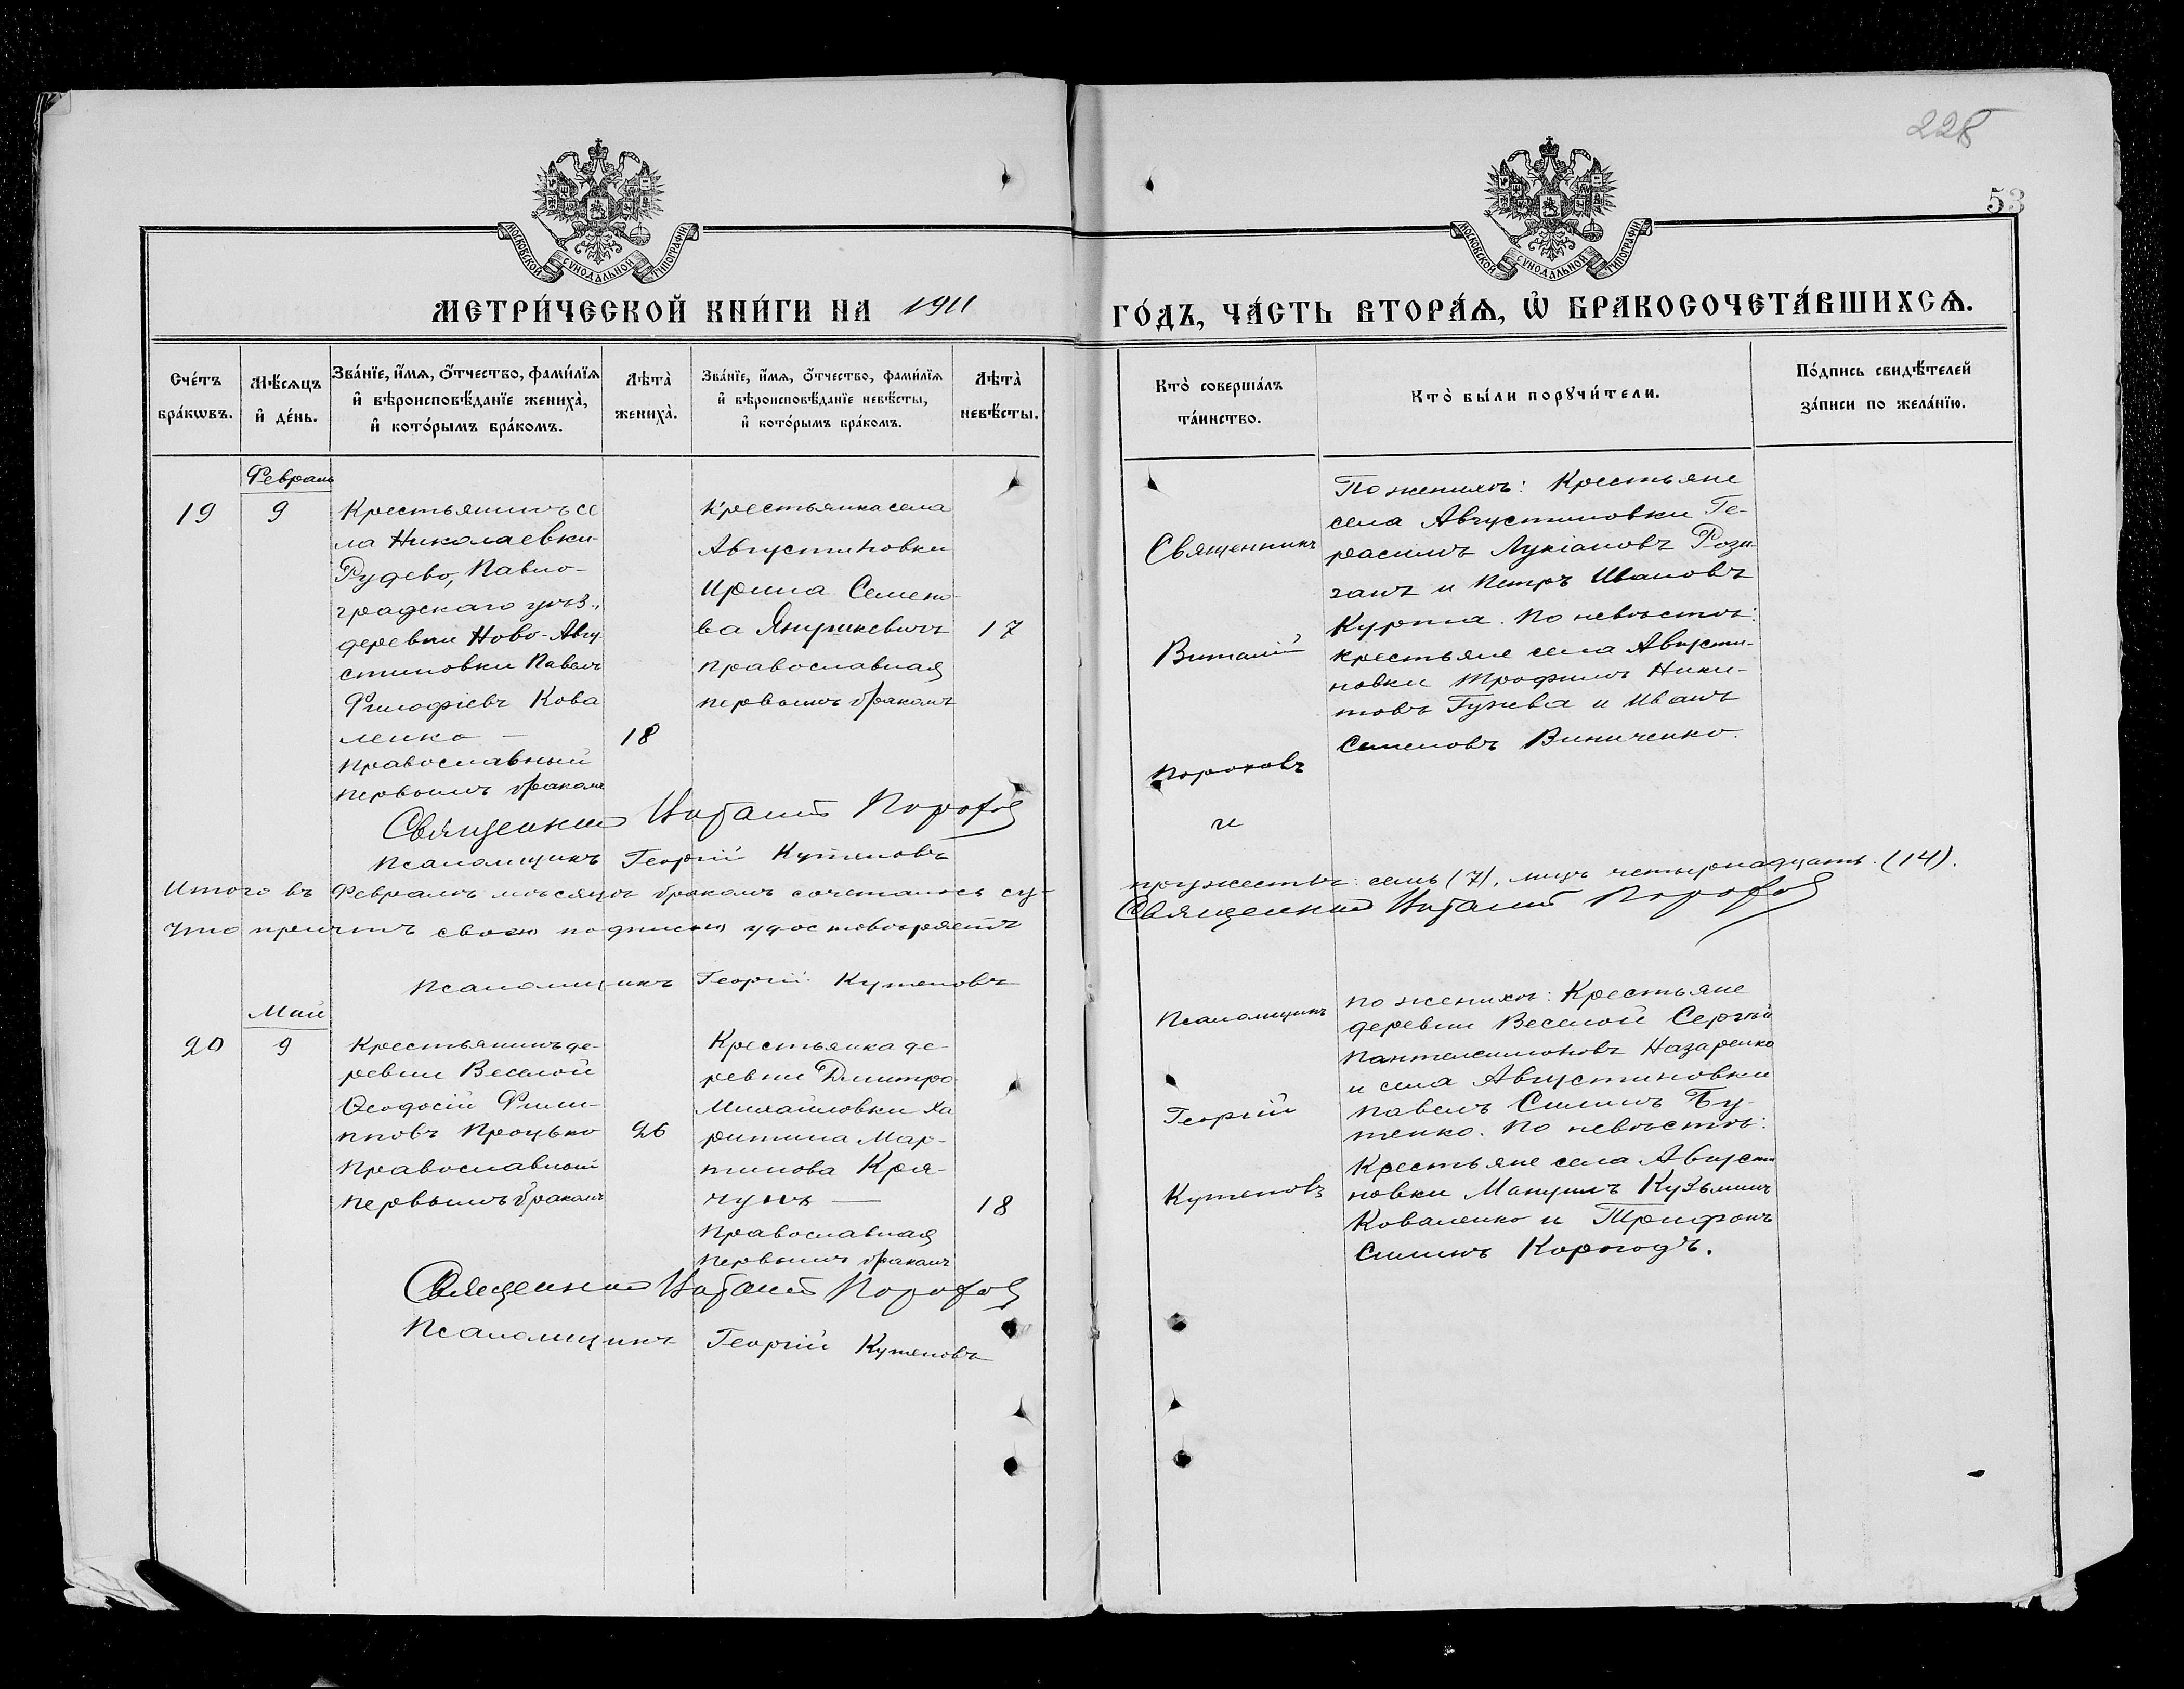 228
53
МОСКОВСКОЙ СѴНОДАЛЬНОЙ ТИПОГРАФІИ
МОСКОВСКОЙ СѴНОДАЛЬНОЙ ТИПОГРАФІИ
МЕТРИ́ЧЕСКОЙ КНИ́ГИ НА 1911
ГО́ДЪ, ЧА́СТЬ ВТОРА́Ѧ, Ѽ БРАКОСОЧЕТА́ВШИХСѦ.
Сче́тъ
бра́кѡвъ.
Мѣ́сяцъ
и де́нь.
Зва́нїе, и́мѧ, о́тчество, фами́лїѧ
и вѣроисповѣ́данїе жениха̀,
и кото́рымъ бра́комъ.
Лѣта̀
жениха̀.
Зва́нїе, и́мѧ, о́тчество, фами́лїѧ
и вѣроисповѣ́данїе невѣ́сты,
и кото́рымъ бра́комъ.
Лѣта̀
невѣ́сты.
Кто̀ соверша́лъ
та́инство.
Кто̀ бы́ли порꙋчи́тели.
По́дпись свидѣ́телей
за́писи по жела́нїю.
Февраль
19
9
Крестьянинъ се
ла Николаевки-
Рудево, Павло-
градскаго уѣз.,
деревни Ново-Авгу
стиновки Павелъ
Филофіевъ Кова
ленко —
православный
первымъ бракомъ
18
Крестьянка села
Августиновки
Ирина Семено
ва Янушкевичъ
православная
первымъ бракомъ
17
Священникъ
Виталій
Пороховъ
и
По женихѣ: Крестьяне
села Августиновки Ге-
расимъ Лукіановъ Розы-
ганъ и Петръ Ивановъ
Курпта. По невѣстѣ:
крестьяне села Августи-
новки Трофимъ Ники-
товъ Гужва и Иванъ
Семеновъ Виниченко.
Священникъ Виталій Пороховъ
Псаломщикъ Георгій Кутеповъ
Итого въ Февралѣ мѣсяцѣ бракомъ сочеталось су-
пружествъ: семь (7), лицъ четырнадцать (14).
Что причтъ своею подписью удостовѣряетъ
Священникъ Виталій Пороховъ
Псаломщикъ Георгій Кутеповъ
Май
20
9
Крестьянинъ де-
ревни Веселой
Ѳеодосій Фили-
пповъ Процько
православный
первымъ бракомъ
26
Крестьянка де-
ревни Дмитро
Михайловки Ха
ритина Мар-
тинова Кря-
чунъ —
православная
первымъ бракомъ
18
Псаломщикъ
Георгій
Кутеповъ
По женихѣ: Крестьяне
деревни Веселой Сергѣй
Пантелеимоновъ Назаренко
и села Августиновки
Павелъ Силинъ Бу-
тенко. По невѣстѣ:
Крестьяне села Августи
новки Мануилъ Кузьминъ
Коваленко и Трифонъ
Силинъ Корогодъ.
Священникъ Виталій Пороховъ
Псаломщикъ Георгій Кутеповъ